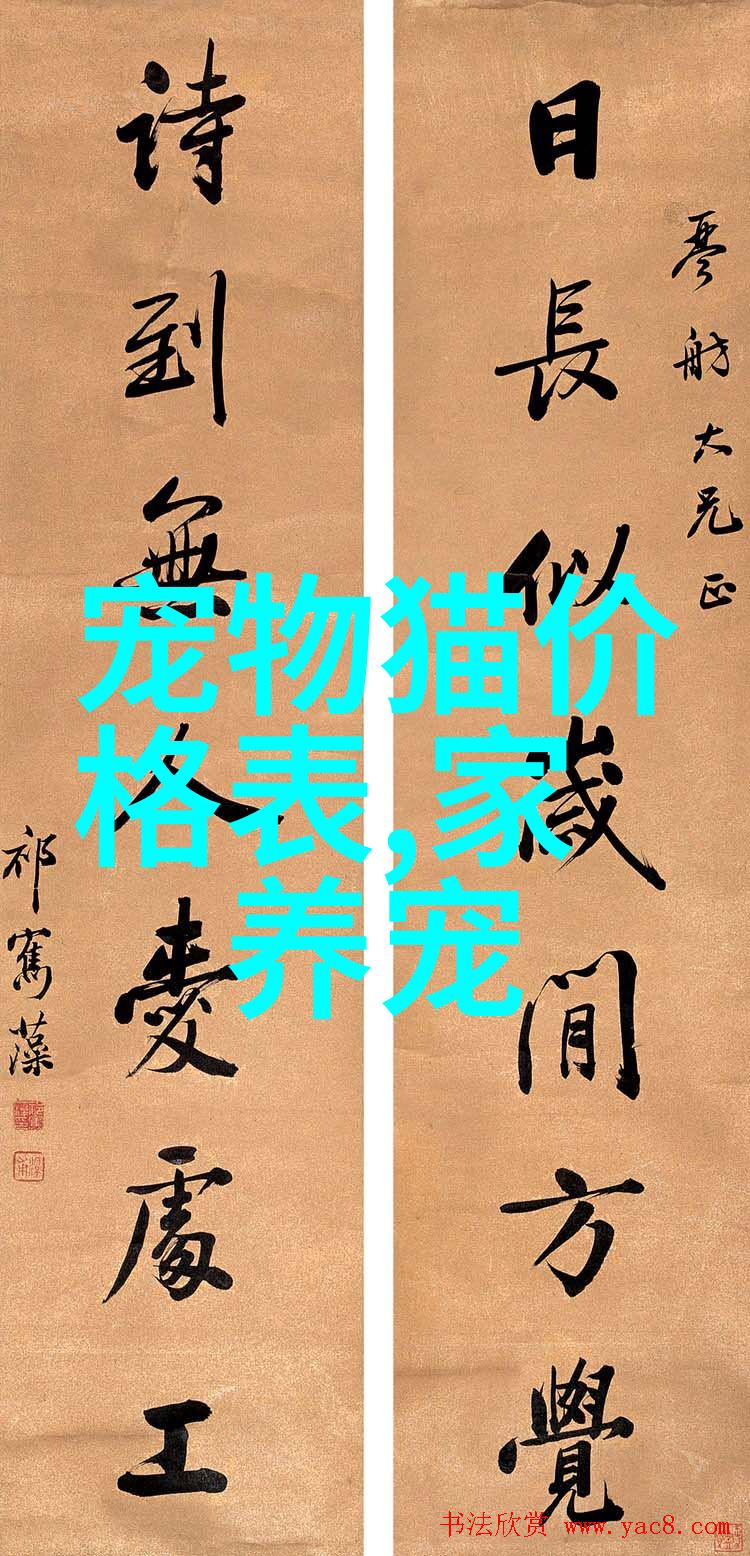 日長似歲閒方覺
琴舫大兄正
詩到無人愛處工
祁寯藻
宠物猫价
格表,家
养宠
书法欣赏 www.yac8.com